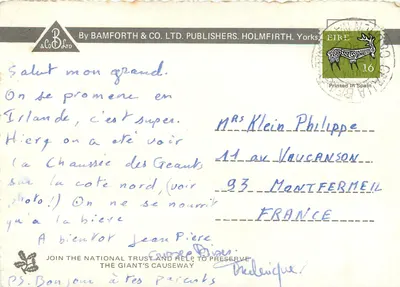 By BAMFORTH & CO. LTD. PUBLISHERS. HOLMFIRTH, Yorks
B
& Co Ltd
EIRE
16
Printed in Spain
Salut mon grand.
On se promene en
Irlande, c'est super.
Hier on a été voir
la Chaussée des Geants
sur la cote nord, (voir
photo!) On ne se nourrit
qu'a la biere
A bientot Jean Piere
JOIN THE NATIONAL TRUST AND HELP TO PRESERVE
THE GIANT'S CAUSEWAY
PS. Bonjour à tes parents
MRS Klein Philippe
11 av VAUCANSON
93 MONTFERMEIL
FRANCE
Frederique